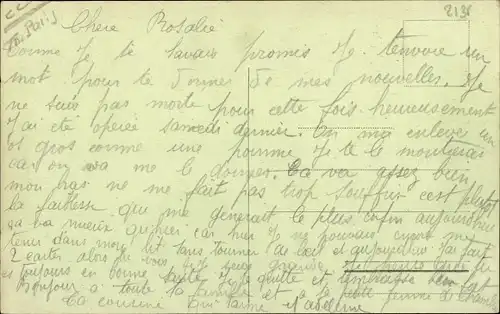 2138
Paris
Chere Rosalie
comme Je te l'avais promis Je t'envoie un
mot pour te donner de mes nouvelles. Je
ne suis pas morte pour cette fois heureusement
J'ai été opérée samedi dernier. On m'a enlevé un
os gros comme une pomme Je te le montrerais
car on va me le donner. Ca va assez bien
mon bras ne me fait pas trop souffrir c'est plutôt
la faiblesse que me generait le plus enfin aujourd'hui
sa va mieux qu'hier car hier Je ne pouvais
tenir dans mon lit sans tourner de l'oeil et aujourd'hui J'ai fait
2 cartes alors tu vois
et toujours en bonne Je te quitte et
bonjour à toute la famille et à la petite femme de
Ta cousine qui t'aime Madeleine